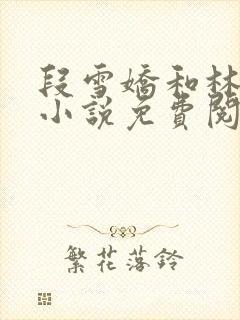 段雪嬌和林
小說免費閱
繁花落鈴